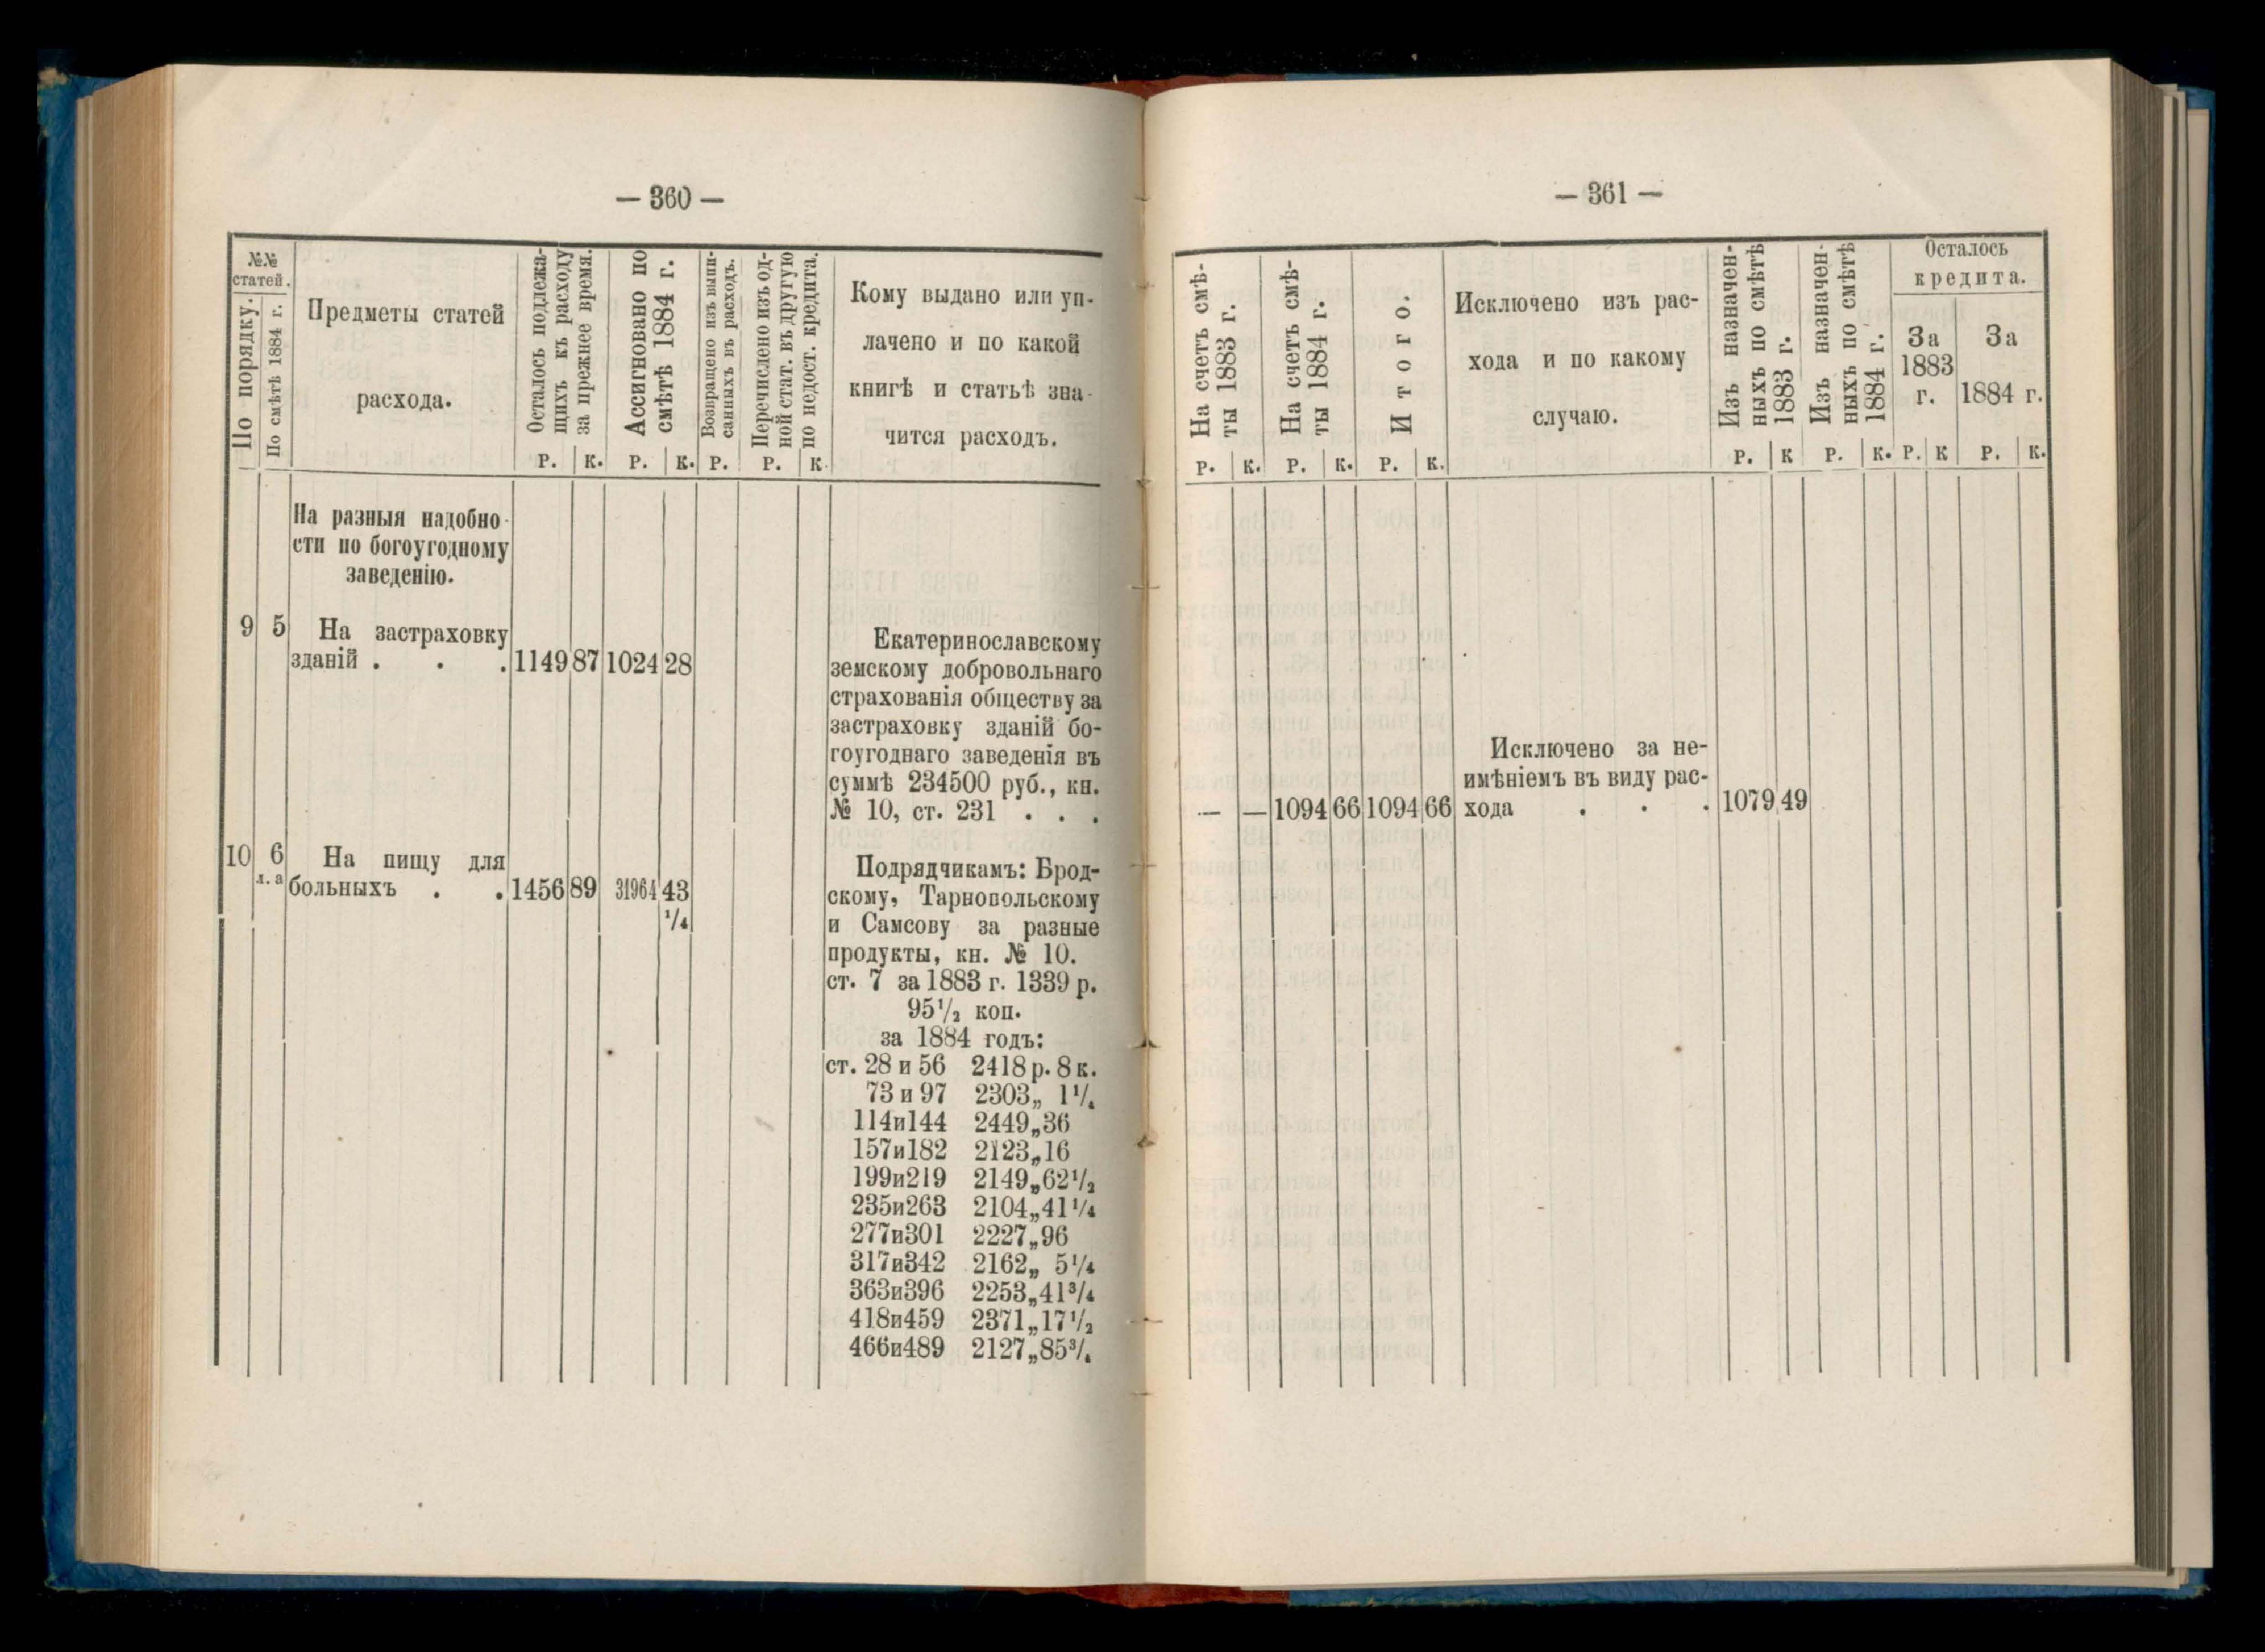 — 360 —
№№
статей.
По порядку.
По смѣтѣ 1884 г.
Предметы статей
расхода.
Осталось подлежа-
щихъ къ расходу
за прежнее время.
Ассигновано по
смѣтѣ 1884 г.
Возвращено изъ выпи-
санныхъ въ расходъ.
Перечислено изъ од-
ной стат. въ другую
по недост. кредита.
Кому выдано или уп-
лачено и по какой
книгѣ и статьѣ зна-
чится расходъ.
Р. К. Р. К. Р. Р. К.
На разныя надобно-
сти по богоугодному
заведенію.
9 5 На застраховку
зданій . . . 1149 87 1024 28
Екатеринославскому
земскому добровольнаго
страхованія обществу за
застраховку зданій бо-
гоугоднаго заведенія въ
суммѣ 234500 руб., кн.
№ 10, ст. 231 . . .
10 6 На пищу для
л. а больныхъ . . 1456 89 31964 43
1/4
Подрядчикамъ: Брод-
скому, Тарнопольскому
и Самсову за разные
продукты, кн. № 10.
ст. 7 за 1883 г. 1339 р.
95½ коп.
за 1884 годъ:
ст. 28 и 56 2418 р. 8 к.
73 и 97 2303„ 1¼
114и144 2449„36
157и182 2123„16
199и219 2149„62½
235и263 2104„41¼
277и301 2227„96
317и342 2162„ 5¼
363и396 2253„41¾
418и459 2371„17½
466и489 2127„85¾
— 361 —
На счетъ смѣ-
ты 1883 г.
На счетъ смѣ-
ты 1884 г.
Итого.
Исключено изъ рас-
хода и по какому
случаю.
Изъ назначен-
ныхъ по смѣтѣ
1883 г.
Изъ назначен-
ныхъ по смѣтѣ
1884 г.
Осталось
кредита.
За
1883
г.
За
1884 г.
Р. К. Р. К. Р. К. Р. К Р. К. Р. К Р. К.
Исключено за не-
имѣніемъ въ виду рас-
— — 1094 66 1094 66 хода . . . 1079 49